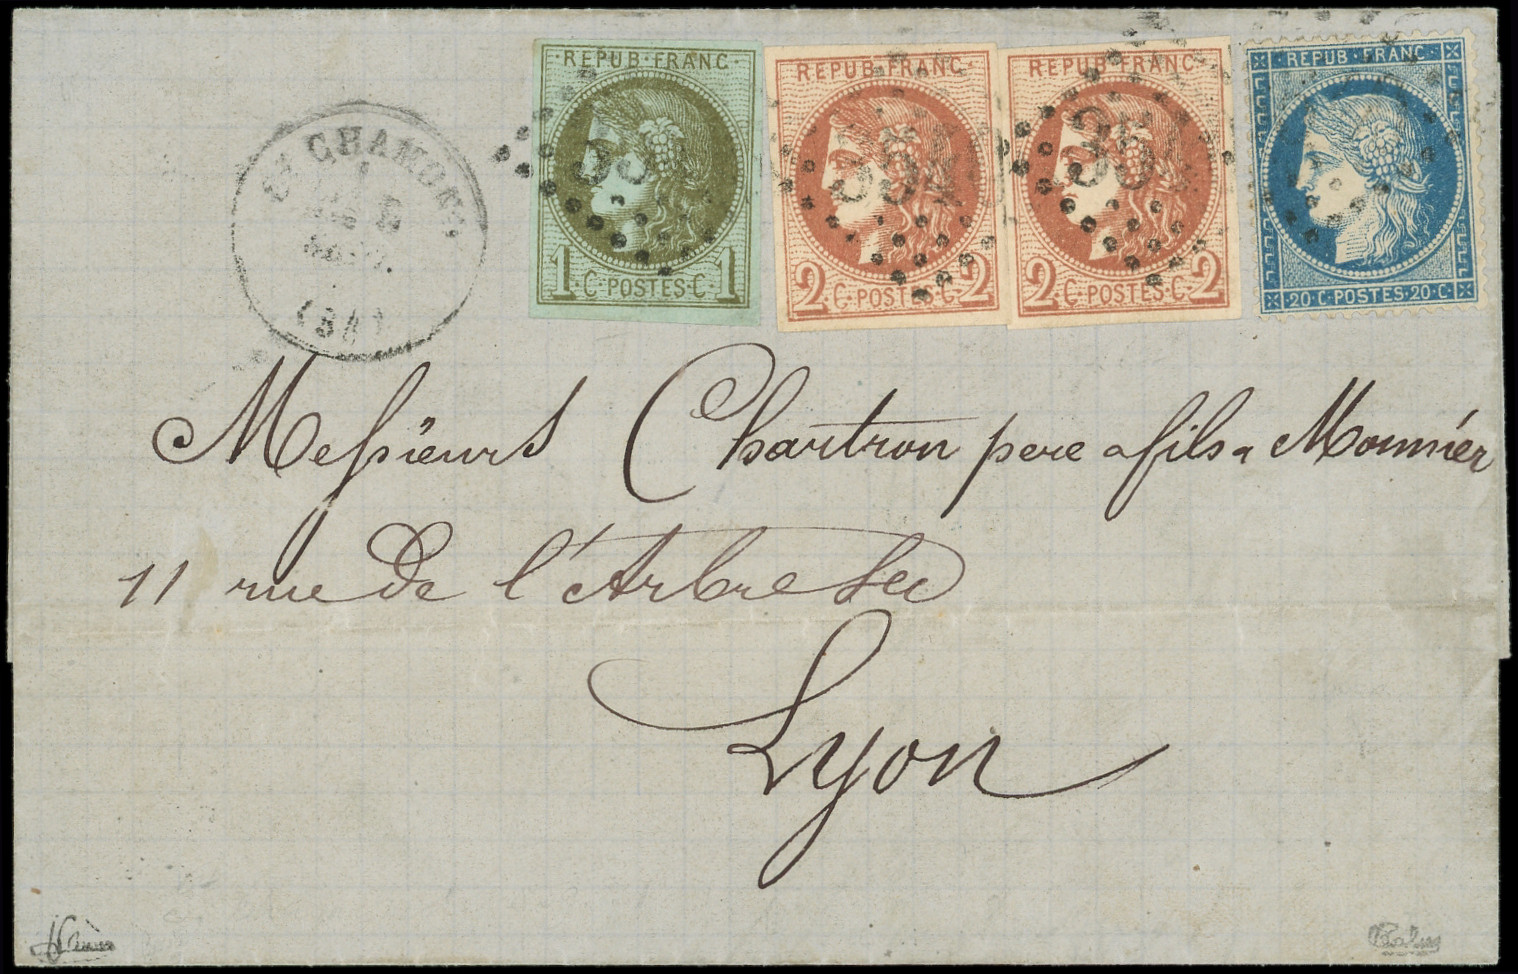 REPUB·FRANC·
1·C·POSTES·C·1
REPUB·FRANC·
2·C·POSTES·C·2
REPUB·FRANC·
2·C·POSTES·C·2
REPUB·FRANC·
20·C·POSTES·20·C·
St CHAMOND
(84)
Messieurs Chartron pere & fils & Monnier
11 rue de l'Arbre Sec
Lyon